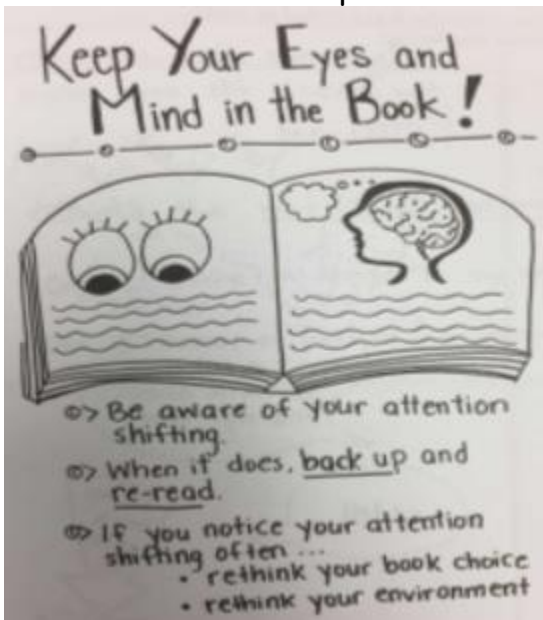 Keep Your Eyes and
Mind in the Book!
Be aware of your attention
shifting.
When it does, back up and
re-read.
If you notice your attention
shifting often ...
• rethink your book choice
• rethink your environment